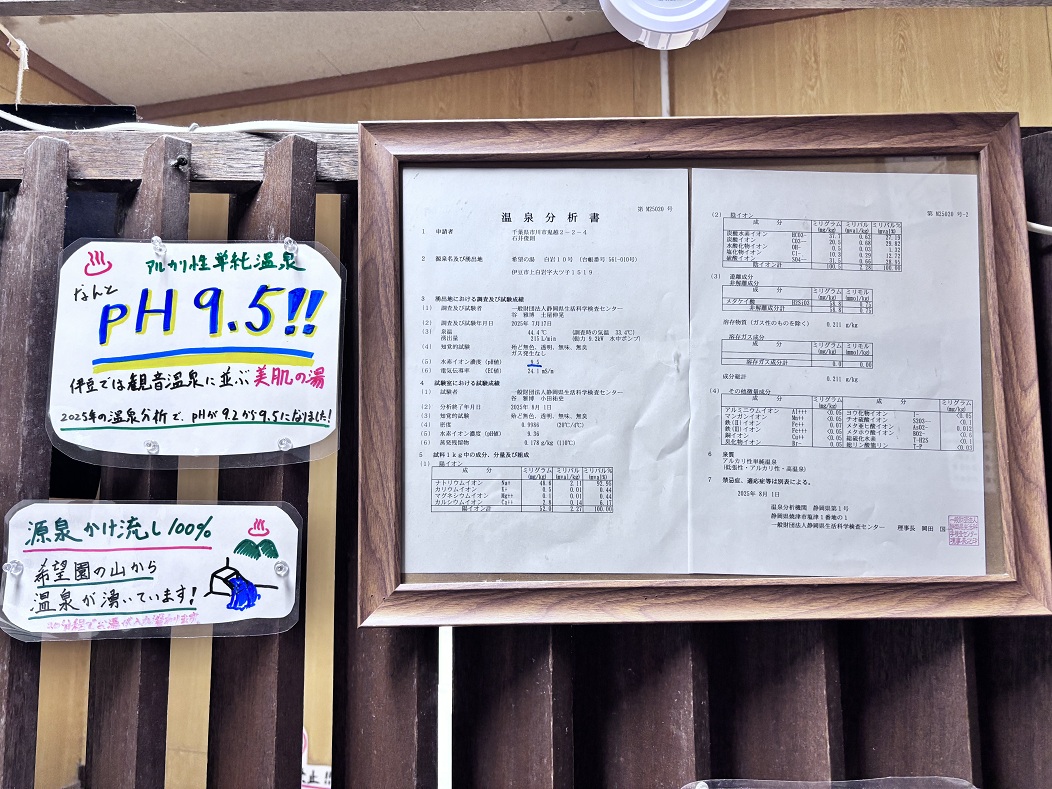 アルカリ性単純温泉
なんと
pH 9.5!!
伊豆では観音温泉に並ぶ美肌の湯
2025年の温泉分析で、pHが9.2から9.5になりました!
源泉かけ流し100%
希望園の山から
温泉が湧いています!
第 M25020 号
温泉分析書
1 申請者 千葉県市川市鬼越2-2-4
石井俊則
2 源泉名及び湧出地 希望の湯 白岩110号 (台帳番号 561-010号)
伊豆市上白岩字大ツ子1519
3 湧出地における調査及び試験成績
(1) 調査及び試験者 一般財団法人静岡県生活科学検査センター
谷 雅博 土屋伸晃
(2) 調査及び試験年月日 2025年 7月17日
(3) 泉温 44.4℃ (調査時の気温 33.4℃)
湧出量 215 L/min (動力 9.2kW 水中ポンプ)
(4) 知覚的試験 殆ど無色、透明、無味、無臭
ガス発生なし
(5) 水素イオン濃度 (pH値) 9.5
(6) 電気伝導率 (EC値) 24.1 mS/m
4 試験室における試験成績
(1) 試験者 一般財団法人静岡県生活科学検査センター
谷 雅博 小田祐史
(2) 分析終了年月日 2025年 8月 1日
(3) 知覚的試験 殆ど無色、透明、無味、無臭
(4) 密度 0.9986 (20℃/4℃)
(5) 水素イオン濃度 (pH値) 9.36
(6) 蒸発残留物 0.178 g/kg (110℃)
5 試料1kg中の成分、分量及び組成
(1) 陽イオン
成分 ミリグラム (mg/kg) ミリバル (mval/kg) ミリバル% (mval%)
ナトリウムイオン Na+ 48.5 2.11 92.95
カリウムイオン K+ 0.5 0.01 0.44
マグネシウムイオン Mg++ 0.1 0.01 0.44
カルシウムイオン Ca++ 2.8 0.14 6.17
陽イオン計 52.0 2.27 100.00
第 M25020 号-2
(2) 陰イオン
成分 ミリグラム (mg/kg) ミリバル (mval/kg) ミリバル% (mval%)
炭酸水素イオン HCO3- 37.7 0.62 27.19
炭酸イオン CO3-- 20.5 0.68 29.82
水酸化物イオン OH- 0.5 0.03 1.32
塩化物イオン Cl- 10.3 0.29 12.72
硫酸イオン SO4-- 31.5 0.66 28.95
陰イオン計 2.28 100.00
(3) 遊離成分
非解離成分
成分 ミリグラム (mg/kg) ミリモル (mmol/kg)
メタケイ酸 H2SiO3 58.8 0.75
非解離成分計 58.8 0.75
溶存物質 (ガス性のものを除く) 0.211 g/kg
溶存ガス成分
成分 ミリグラム (mg/kg) ミリモル (mmol/kg)
溶存ガス成分計 0.00 0.00
成分総計 0.211 g/kg
(4) その他微量成分
成分 ミリグラム (mg/kg) 成分 ミリグラム (mg/kg)
アルミニウムイオン Al+++ <0.05 ヨウ化物イオン I- <0.05
マンガンイオン Mn++ <0.05 チオ硫酸イオン S2O3-- <0.1
鉄(Ⅱ)イオン Fe++ 0.07 メタ亜ヒ酸イオン AsO2- 0.012
鉄(Ⅲ)イオン Fe+++ <0.05 メタホウ酸イオン BO2-
銅イオン Cu++ <0.05 総硫化水素 T-H2S <0.1
臭化物イオン Br- <0.05 総リン酸態リン T-P
6 泉質
アルカリ性単純温泉
(低張性・アルカリ性・高温泉)
7 禁忌症、適応症等は別表による。
2025年 8月 1日
温泉分析機関 静岡県第1号
静岡県焼津市塩津1番地の1
一般財団法人静岡県生活科学検査センター 理事長 岡田 国